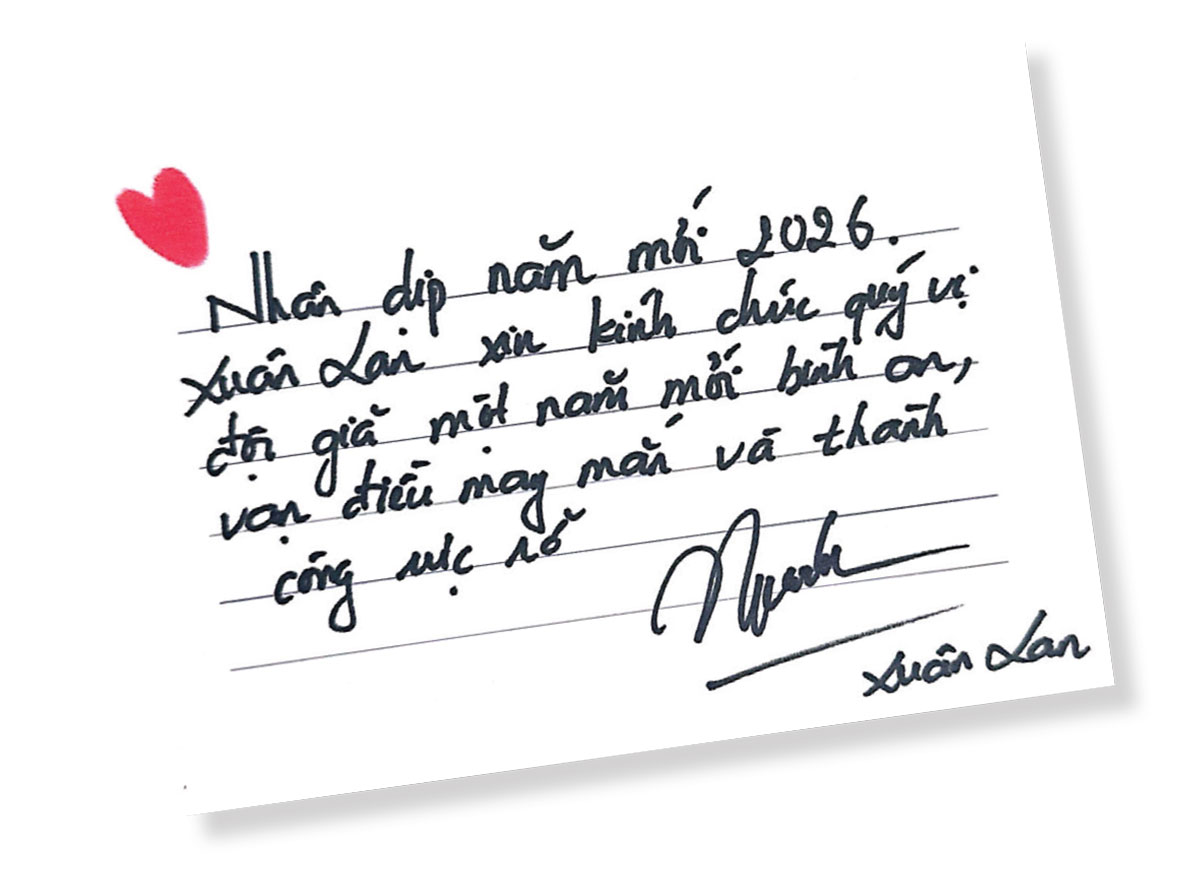 Nhân dịp năm mới 2026.
Xuân Lan xin kính chúc quý vị
độc giả một năm mới bình an,
vạn điều may mắn và thành
công rực rỡ
Xuân Lan